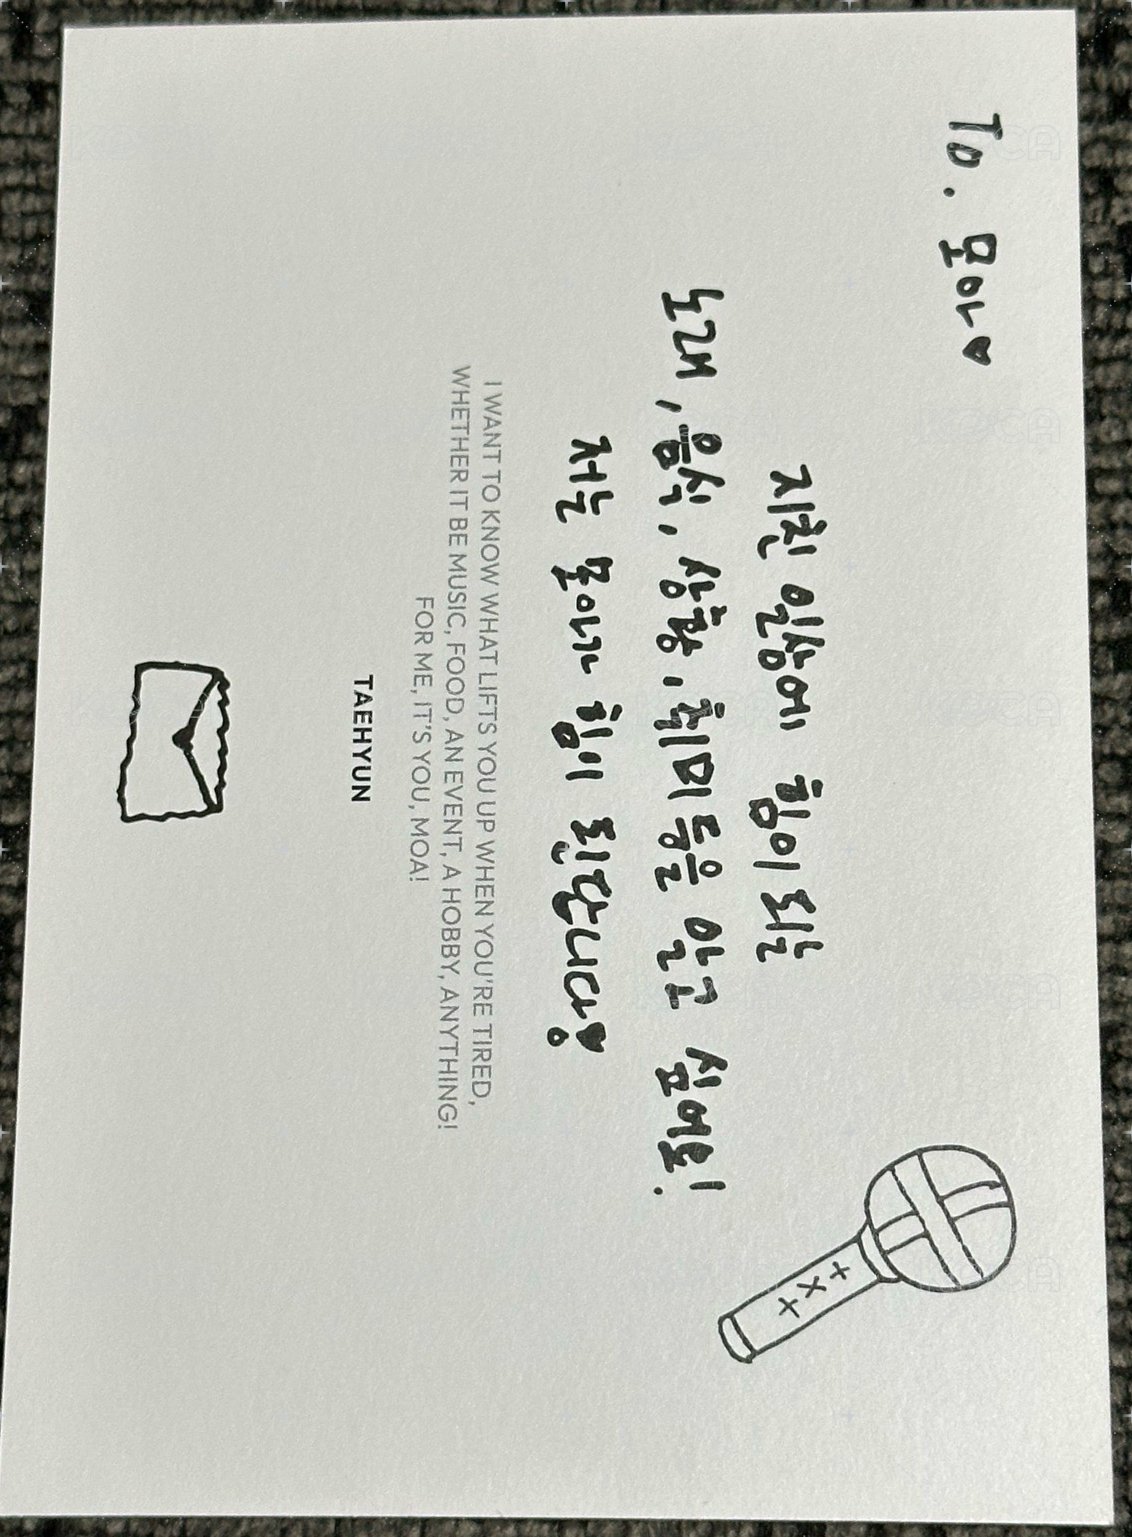 To. 모아♥
지친 일상에 힘이 되는
노래, 음식, 상황, 취미 등을 알고 싶어요!
저는 모아가 힘이 된답니다♥
I WANT TO KNOW WHAT LIFTS YOU UP WHEN YOU'RE TIRED,
WHETHER IT BE MUSIC, FOOD, AN EVENT, A HOBBY, ANYTHING!
FOR ME, IT'S YOU, MOA!
TAEHYUN
+x+